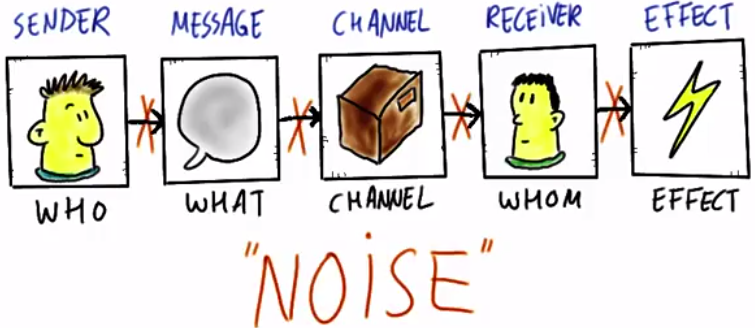 SENDER MESSAGE CHANNEL RECEIVER EFFECT
WHO WHAT CHANNEL WHOM EFFECT
"NOiSE"